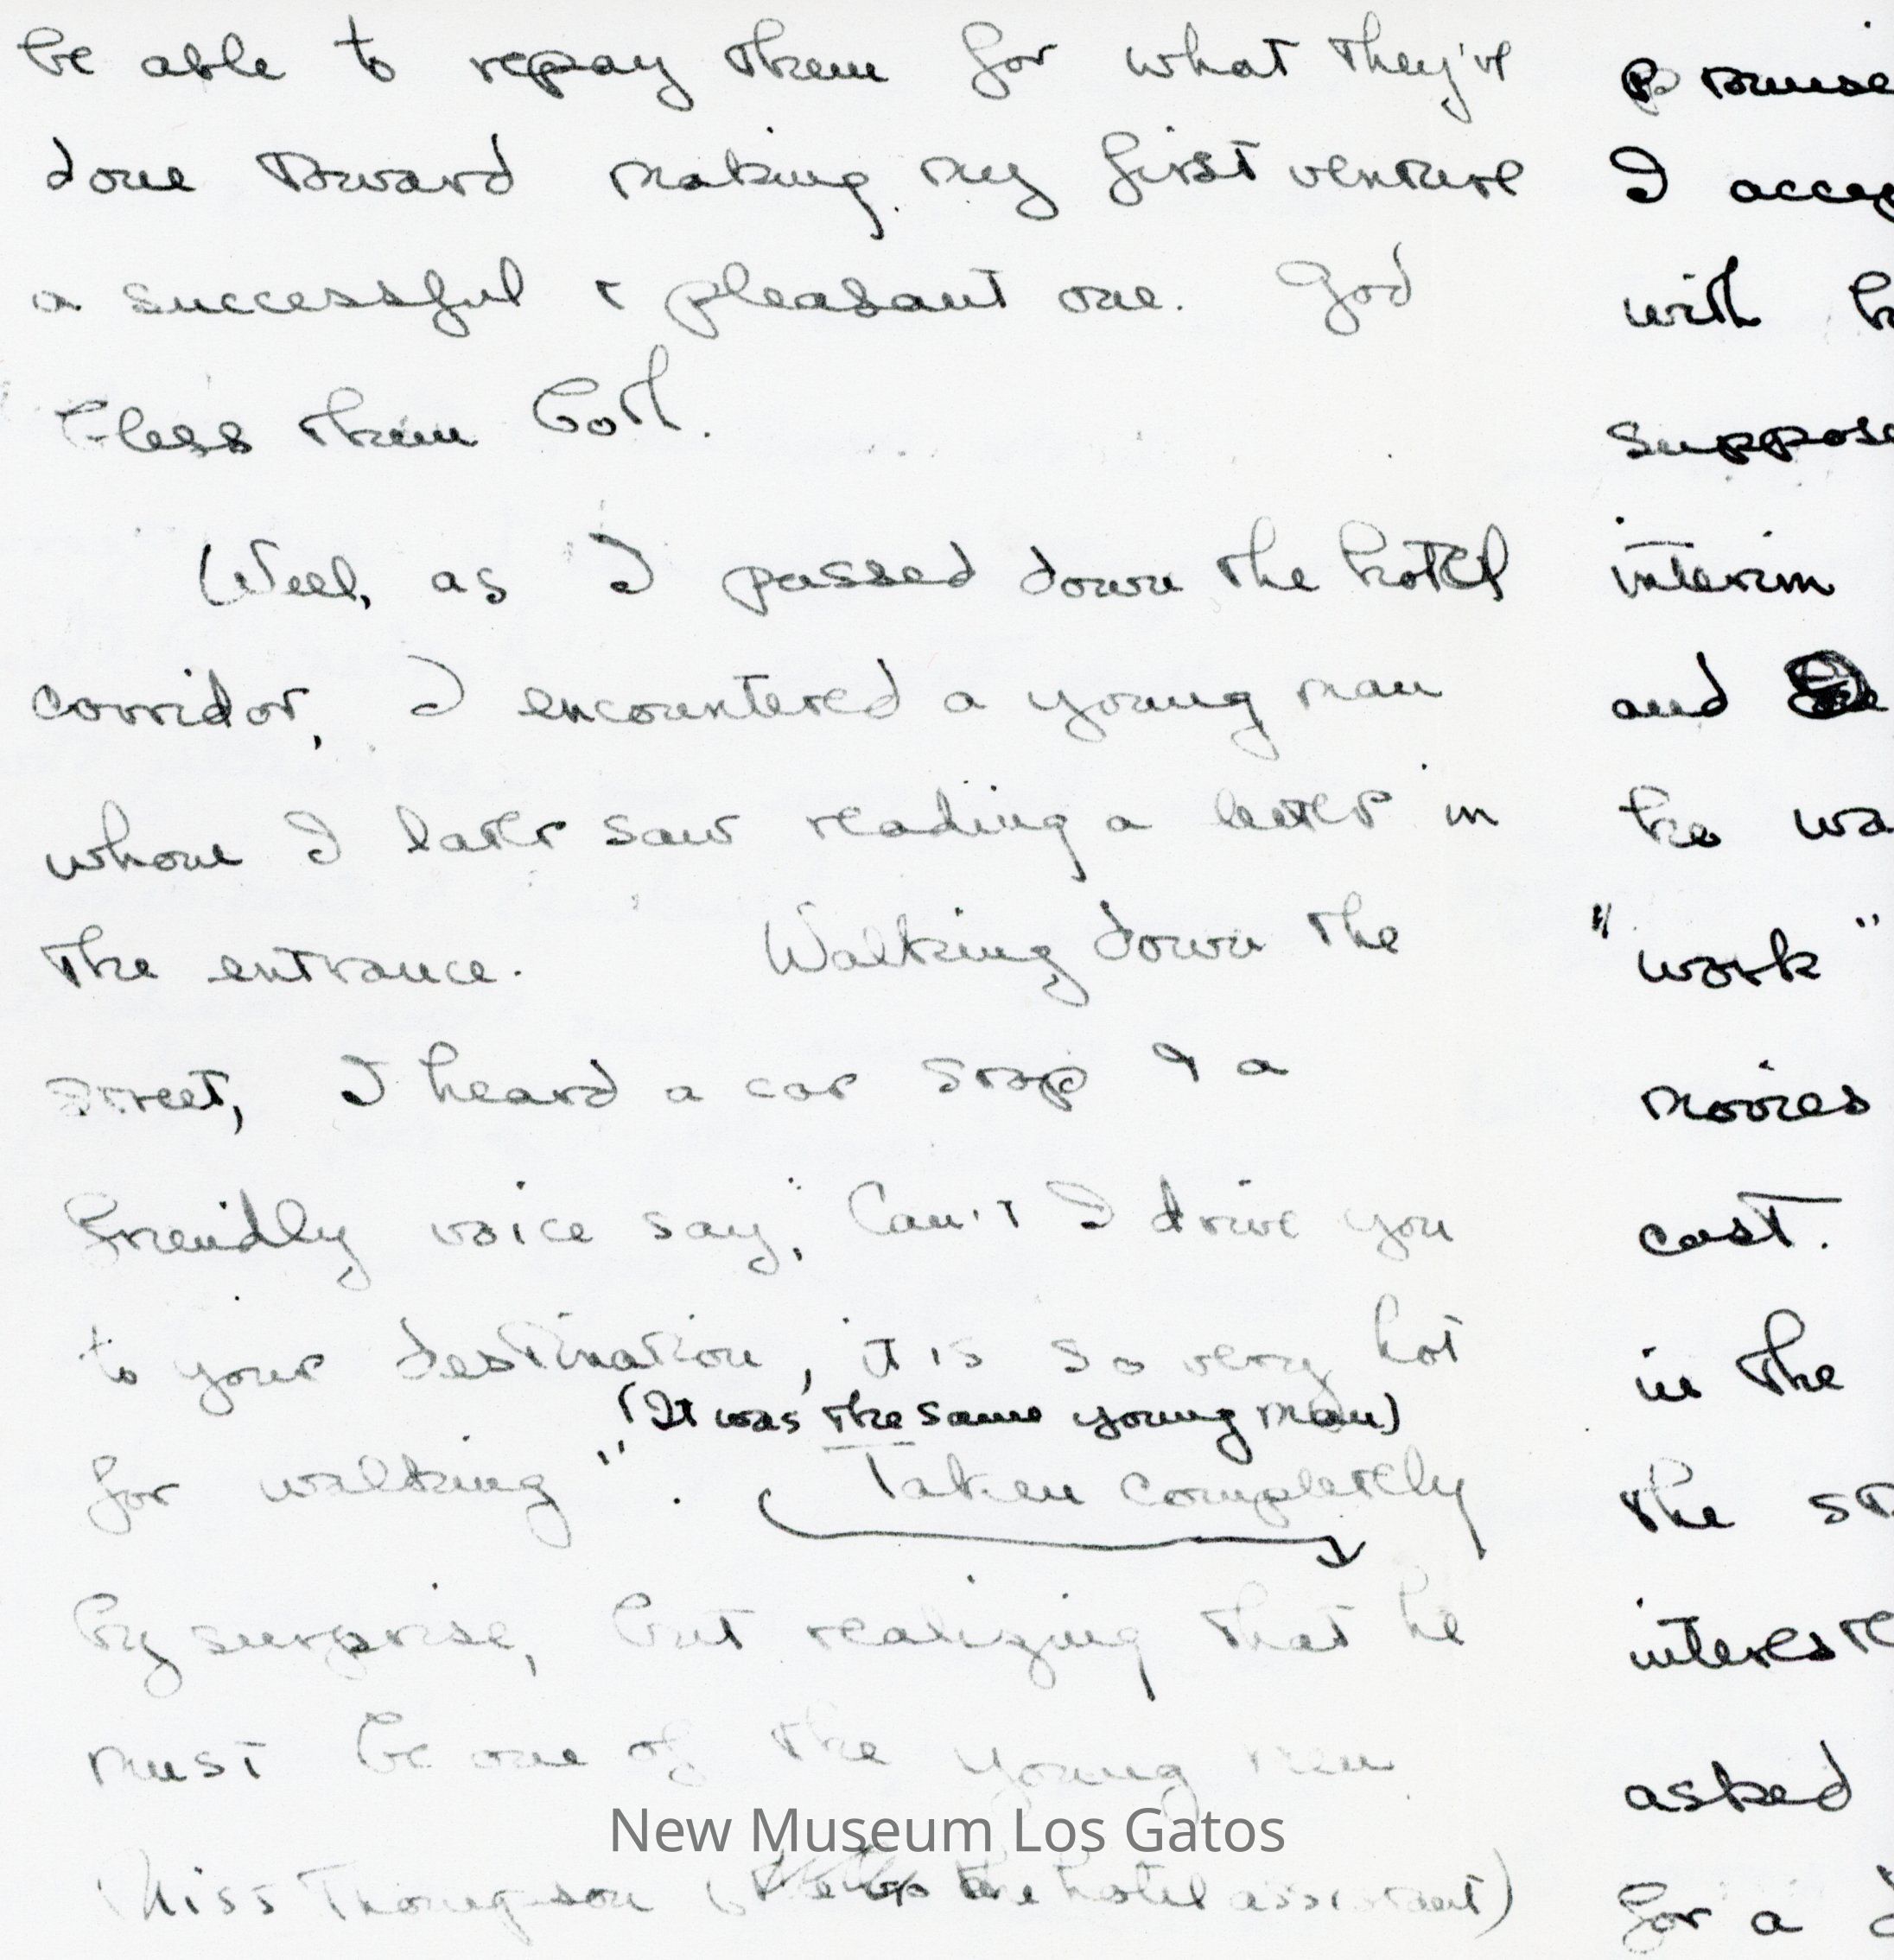 be able to repay them for what they've
done toward making my first venture
a successful & pleasant one. God
bless them both.
Well, as I passed down the hotel
corridor, I encountered a young man
whom I later saw reading a letter in
the entrance. Walking down the
street, I heard a car stop & a
friendly voice say, "Can't I drive you
to your destination, it is so very hot
(It was the same young man)
for walking". Taken completely
by surprise, but realizing that he
must be one of the young men
Miss Thompson (the hotel assistant)
promise
I accep
with h
suppose
interim
and
he wa
"work"
movies
cast.
in the
the st
intereste
asked
for a
New Museum Los Gatos